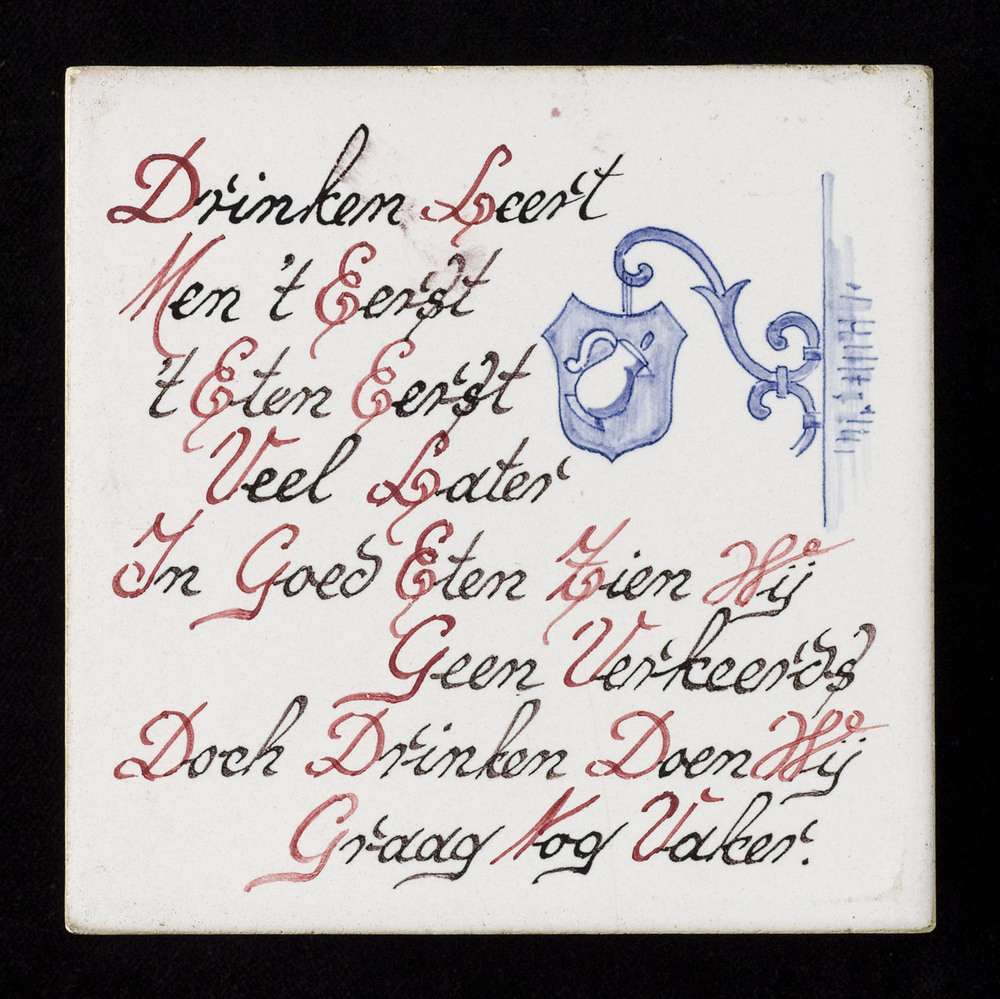 Drinken Leert
Men 't Eerst
't Eten Eerst
Veel Later
In Goed Eten Zien Wij
Geen Verkeerds
Doch Drinken Doen Wij
Graag Nog Vaker.